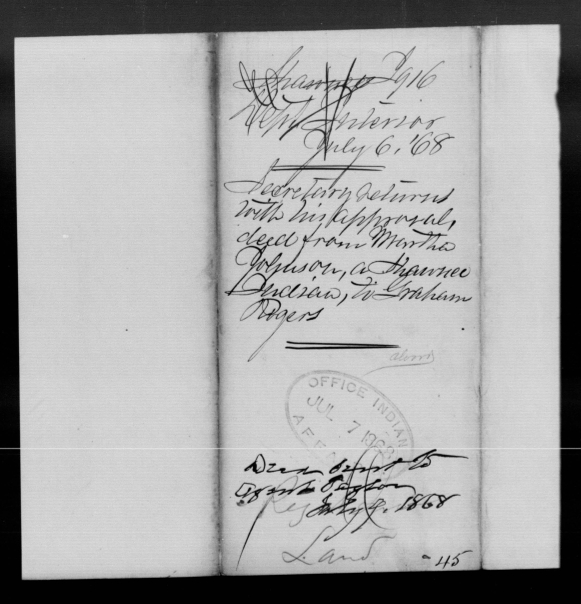 Shawnee I 916
Dept. Interior
July 6, '68
Secretary returns
with his approval,
deed from Martha
Johnson, a Shawnee
Indian, to Graham
Rogers
OFFICE INDIAN
JUL 7 1868
AFFAIRS
Deed sent to
Agent Taylor
July 9, 1868
Land
-45